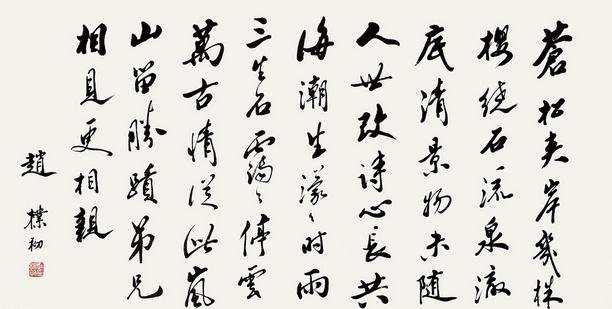 蒼松夾岸幾株
櫻繞石流泉澈
底清景物未随
人世改詩心長共
海潮生濛〻时雨
三生石靄〻停雲
萬古情從此嵐
山留勝蹟弟兄
相見更相親
趙樸初